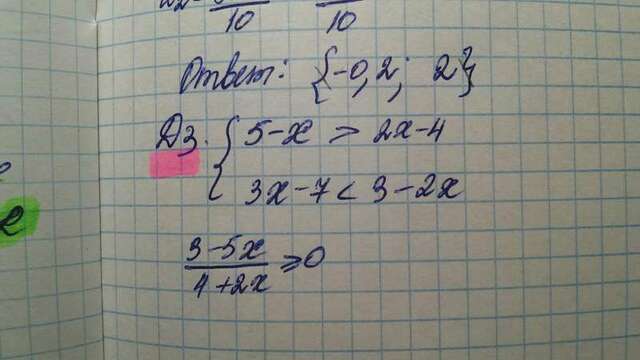 10 10
Ответ: {-0,2; 2}
ДЗ. { 5-x > 2x-4
3x-7 < 3-2x
3-5x
4+2x ≥0